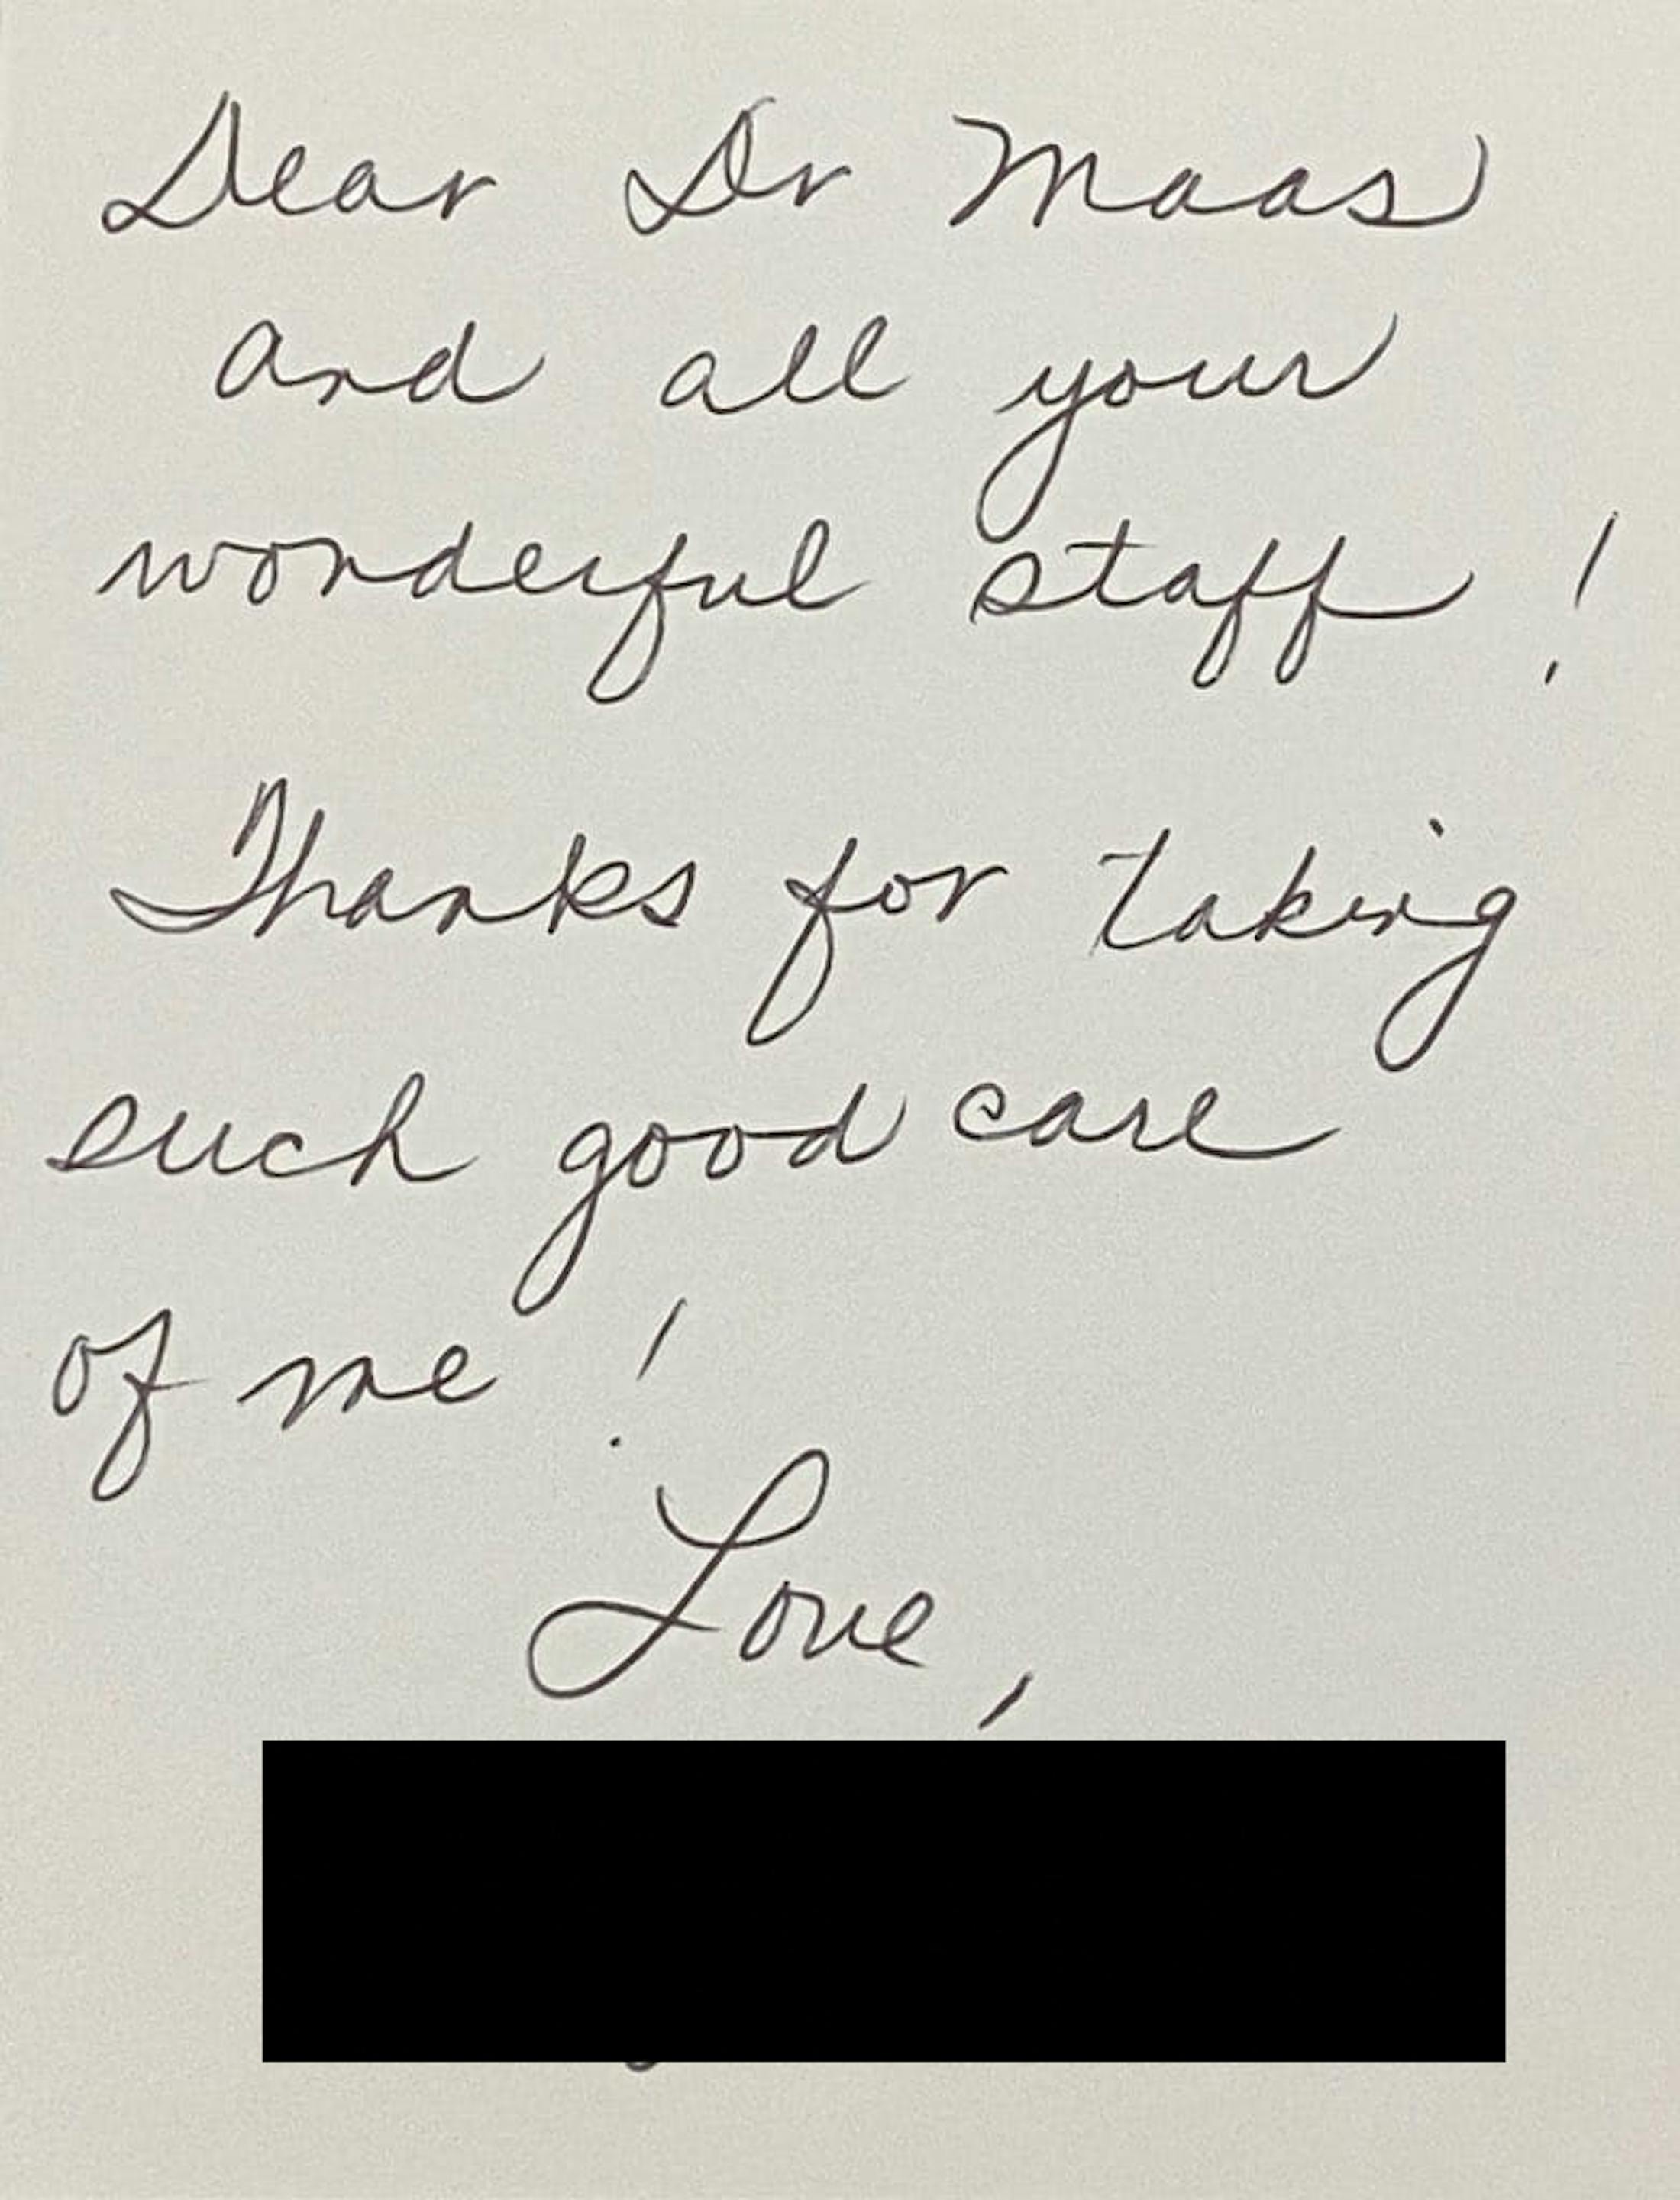 Dear Dr Maas
and all your
wonderful staff!
Thanks for taking
such good care
of me!
Love,